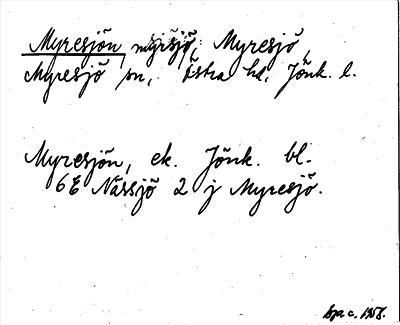 Myresjön, myršjö, Myresjö,
Myresjö sn, Östra hd, Jönk. l.
Myresjön, ek. Jönk. bl.
6E Nässjö 2 j Myresjö.
c. 1958.